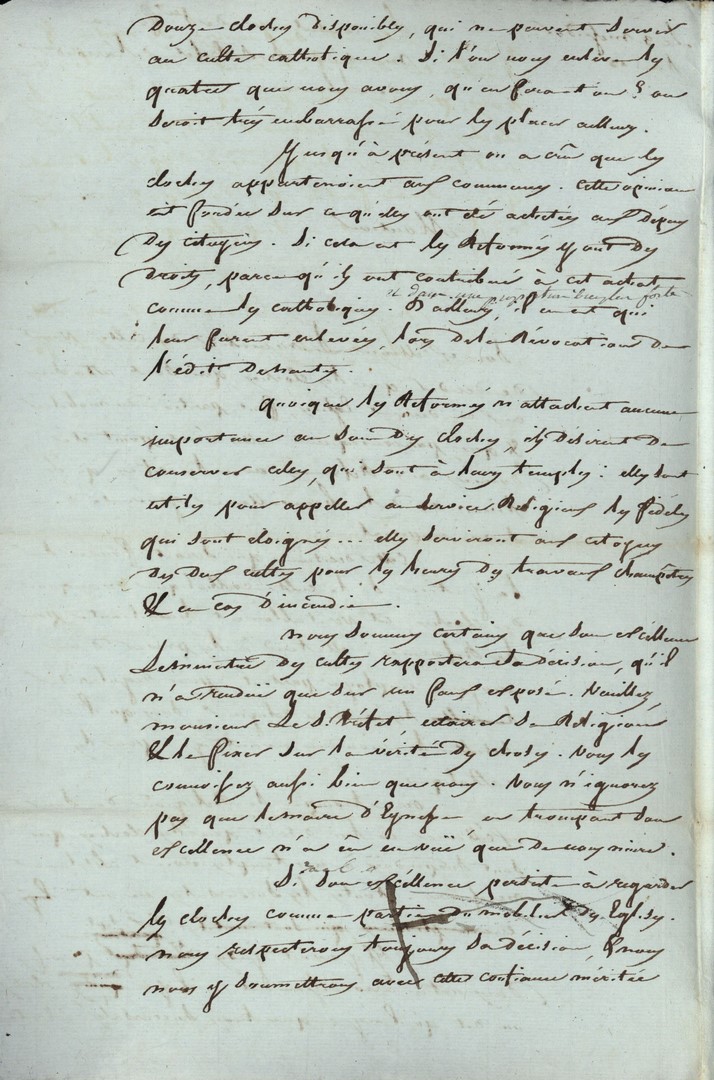 Douze cloches disponibles, qui ne peuvent servir
au culte catholique. Si l'on nous enlève les
quatre que nous avons, qu'en fera-t-on ? on
seroit très embarrassé pour les placer ailleurs.
Jusqu'à présent on a crû que les
cloches appartenoient aux communes. cette opinion
est fondée sur ce qu'elles ont été achetées aux dépens
des citoyens. Si cela est les Réformés y ont des
droits, parce qu'ils ont contribué à cet achat
comme les catholiques. D'ailleurs, il en est qui
et dans une proportion bien plus forte
leur furent enlevées, lors de la Révocation de
l'édit de nantes.
quoique les Réformés n'attachent aucune
importance au son des cloches, ils désirent de
conserver celles, qui sont à leurs temples : elles sont
utiles pour appeller au service Religieux les fidèles
qui sont éloignés... elles serviront aux citoyens
des deux cultes pour les heures des travaux champêtres
& en cas d'incendie.
nous sommes certains que son excellence
Le ministre des cultes rapportera sa décision, qu'il
n'a rendüe que sur un faux exposé. Veuillez,
monsieur Le S. Préfet éclairer sa Religion
& le fixer sur la vérité des choses. Vous les
connoissez aussi bien que nous. Vous n'ignorez
pas que le maire d'Eynesse en trompant son
excellence n'a eu en vüe que de nous nuire.
Si son excellence persiste à regarder
les cloches comme partie du mobilier des Eglises.
nous respecterons toujours sa décision, & nous
nous y soumettrons avec cette confiance méritée